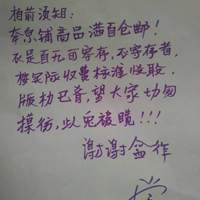 拍前须知:
本店铺商品满百包邮!
不足百元可寄存,不寄存者,
按实际收费标准收取.
版权已首,望大家切勿
模仿,以免被赔!!!
谢谢合作